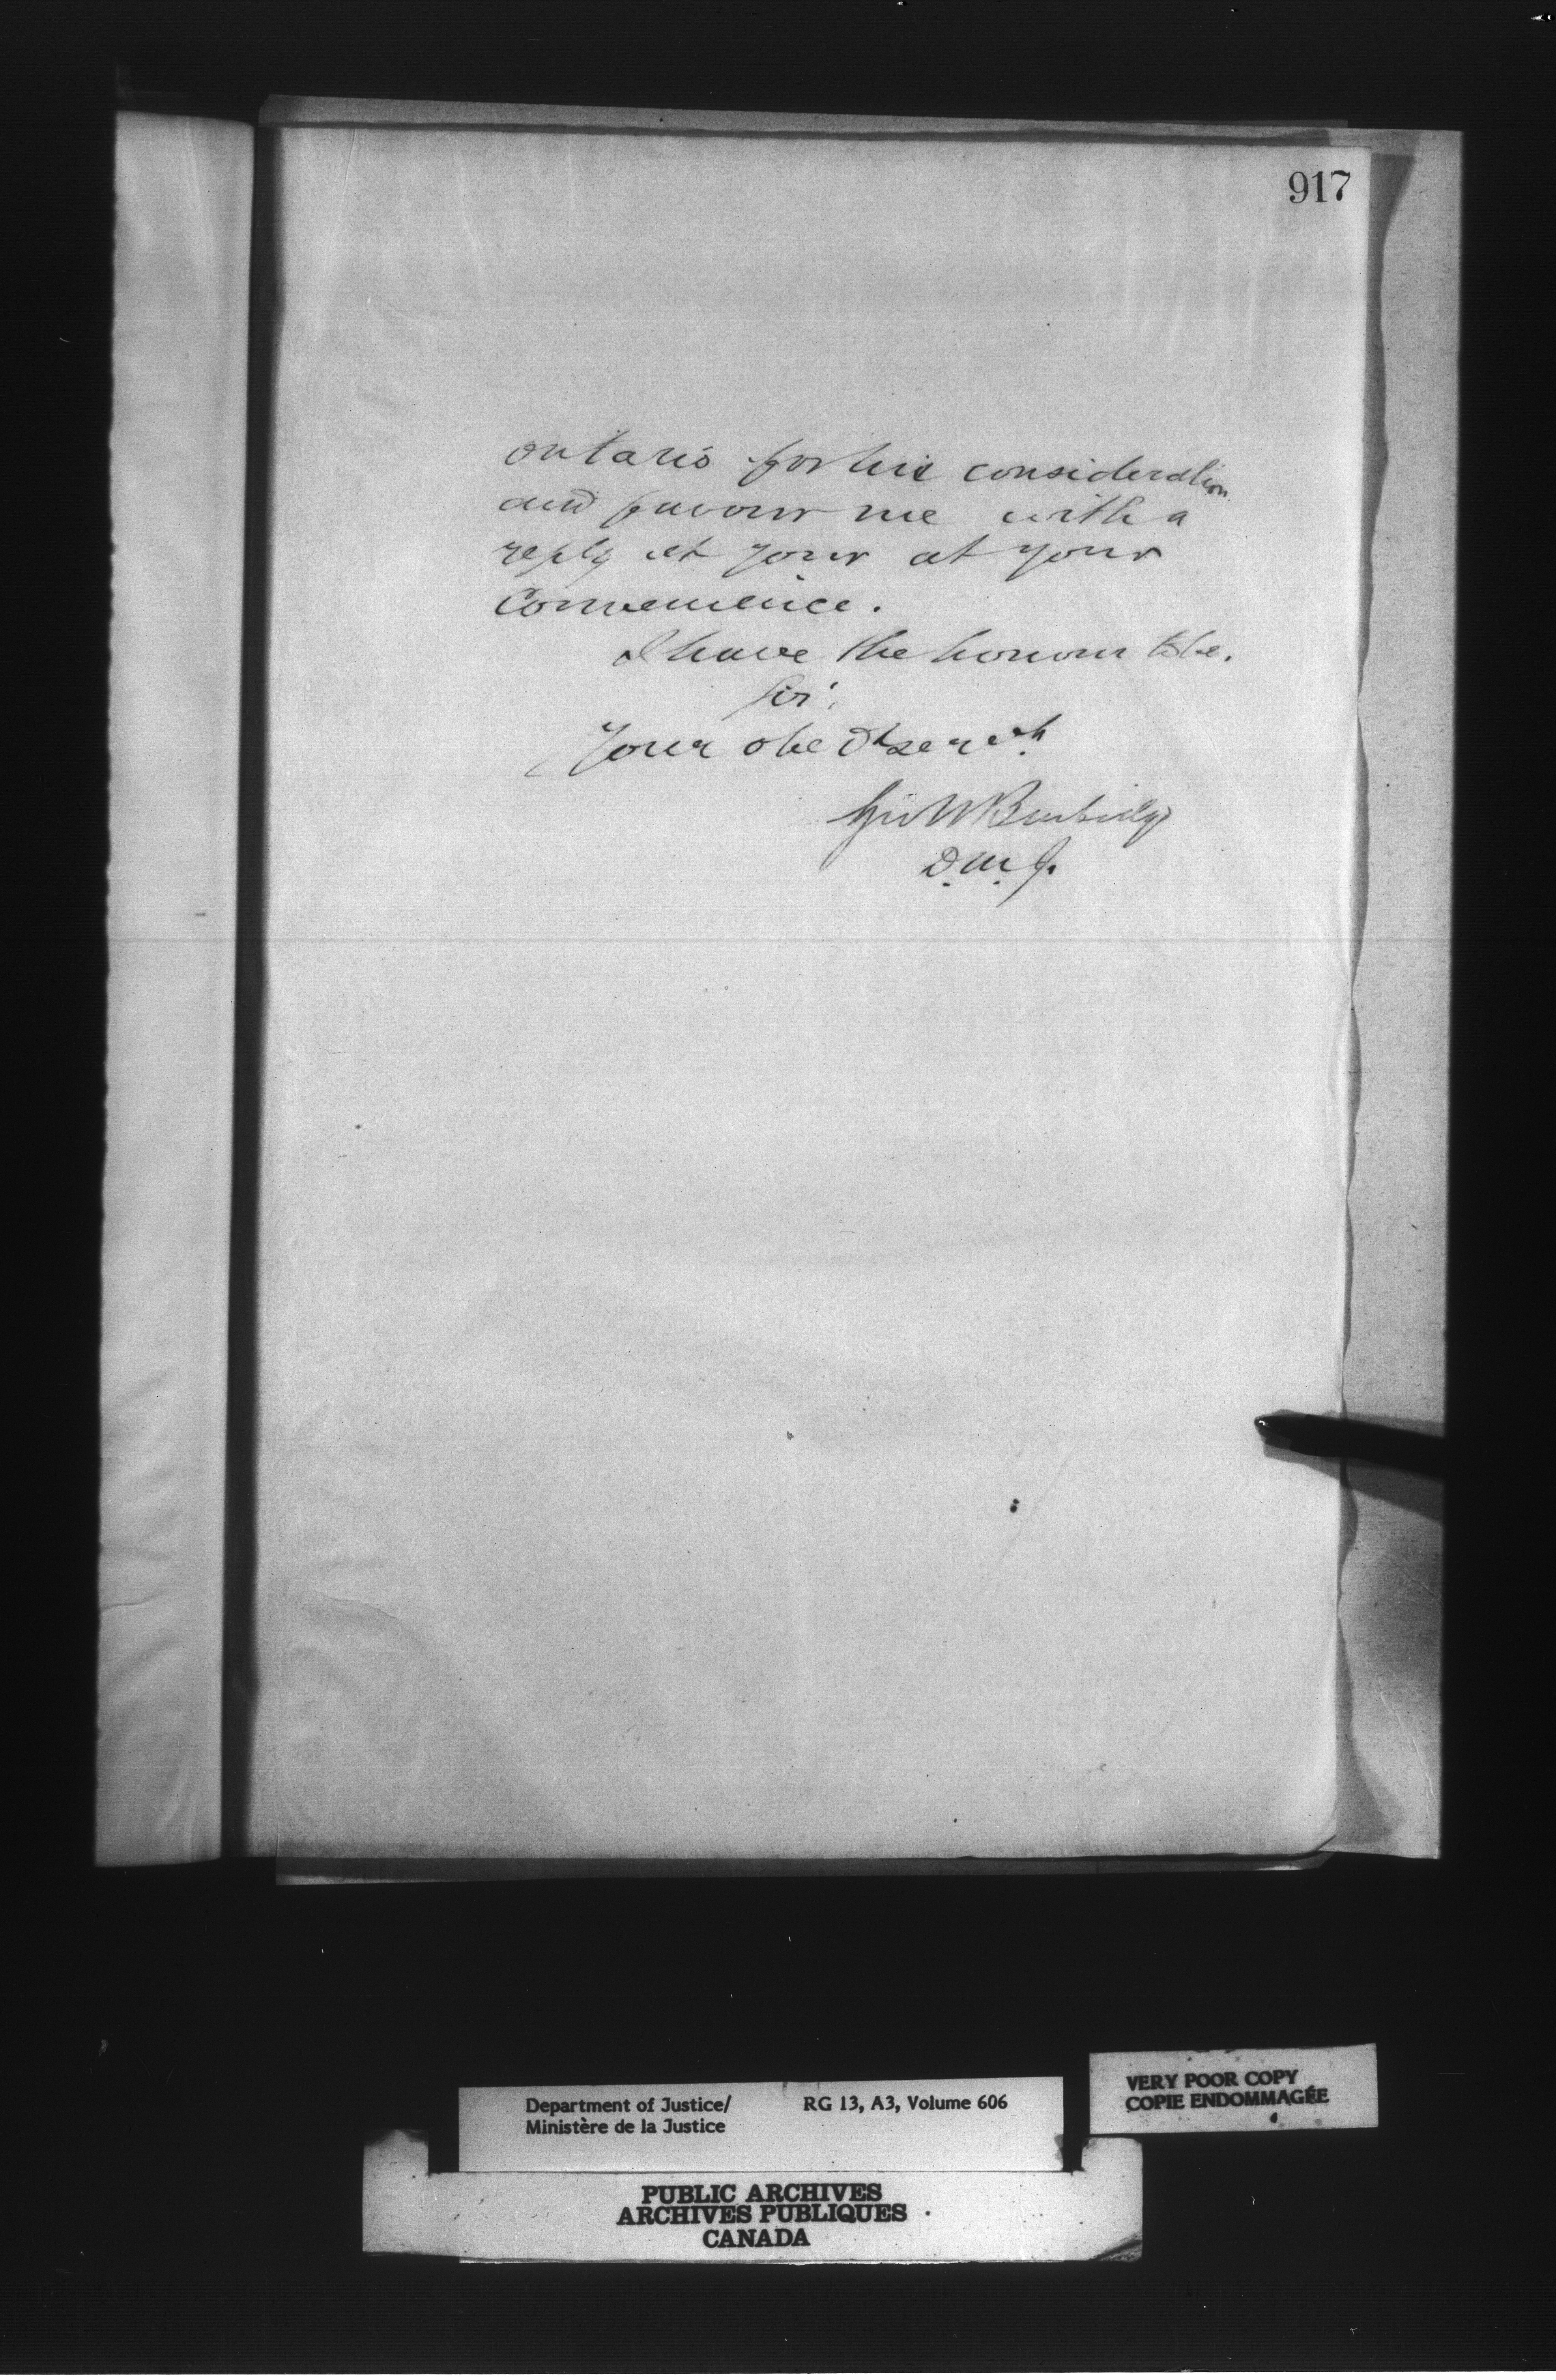 917
Ontario for his consideration
and favour me with a
reply at your at your
Convenience.
I have the honour to be.
Sir,
Your obedt servt
Geo W Burbidge
D.M.J.
Department of Justice/ RG 13, A3, Volume 606
Ministère de la Justice
VERY POOR COPY
COPIE ENDOMMAGÉE
PUBLIC ARCHIVES
ARCHIVES PUBLIQUES
CANADA